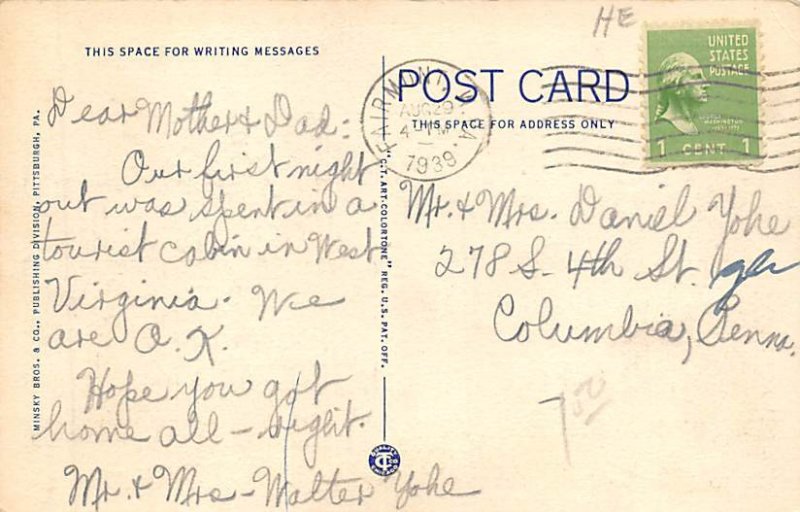 HE
THIS SPACE FOR WRITING MESSAGES
POST CARD
THIS SPACE FOR ADDRESS ONLY
UNITED
STATES
POSTAGE
1 CENT 1
FAIRMONT
AUG 29
1939
Dear Mother & Dad:
Our first night
out was spent in a
tourist cabin in West
Virginia. We
are O.K.
Hope you got
home all-right.
Mr. & Mrs- Walter Yohe
Mr. & Mrs. Daniel Yohe
278 S. 4th St.
Columbia, Penna.
MINSKY BROS. & CO., PUBLISHING DIVISION, PITTSBURGH, PA.
"C.T. ART-COLORTONE" REG. U.S. PAT. OFF.